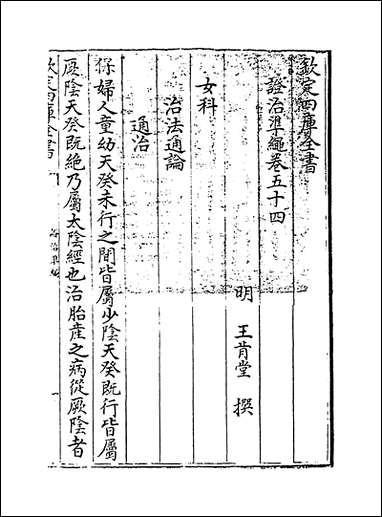 欽定四庫全書
證治準繩卷五十四
明 王肯堂 撰
女科
治法通論
通治
保婦人童幼天癸未行之間皆屬少陰天癸既行皆屬
厥陰天癸既絶乃屬太陰經也治胎産之病從厥陰者
欽定四庫全書